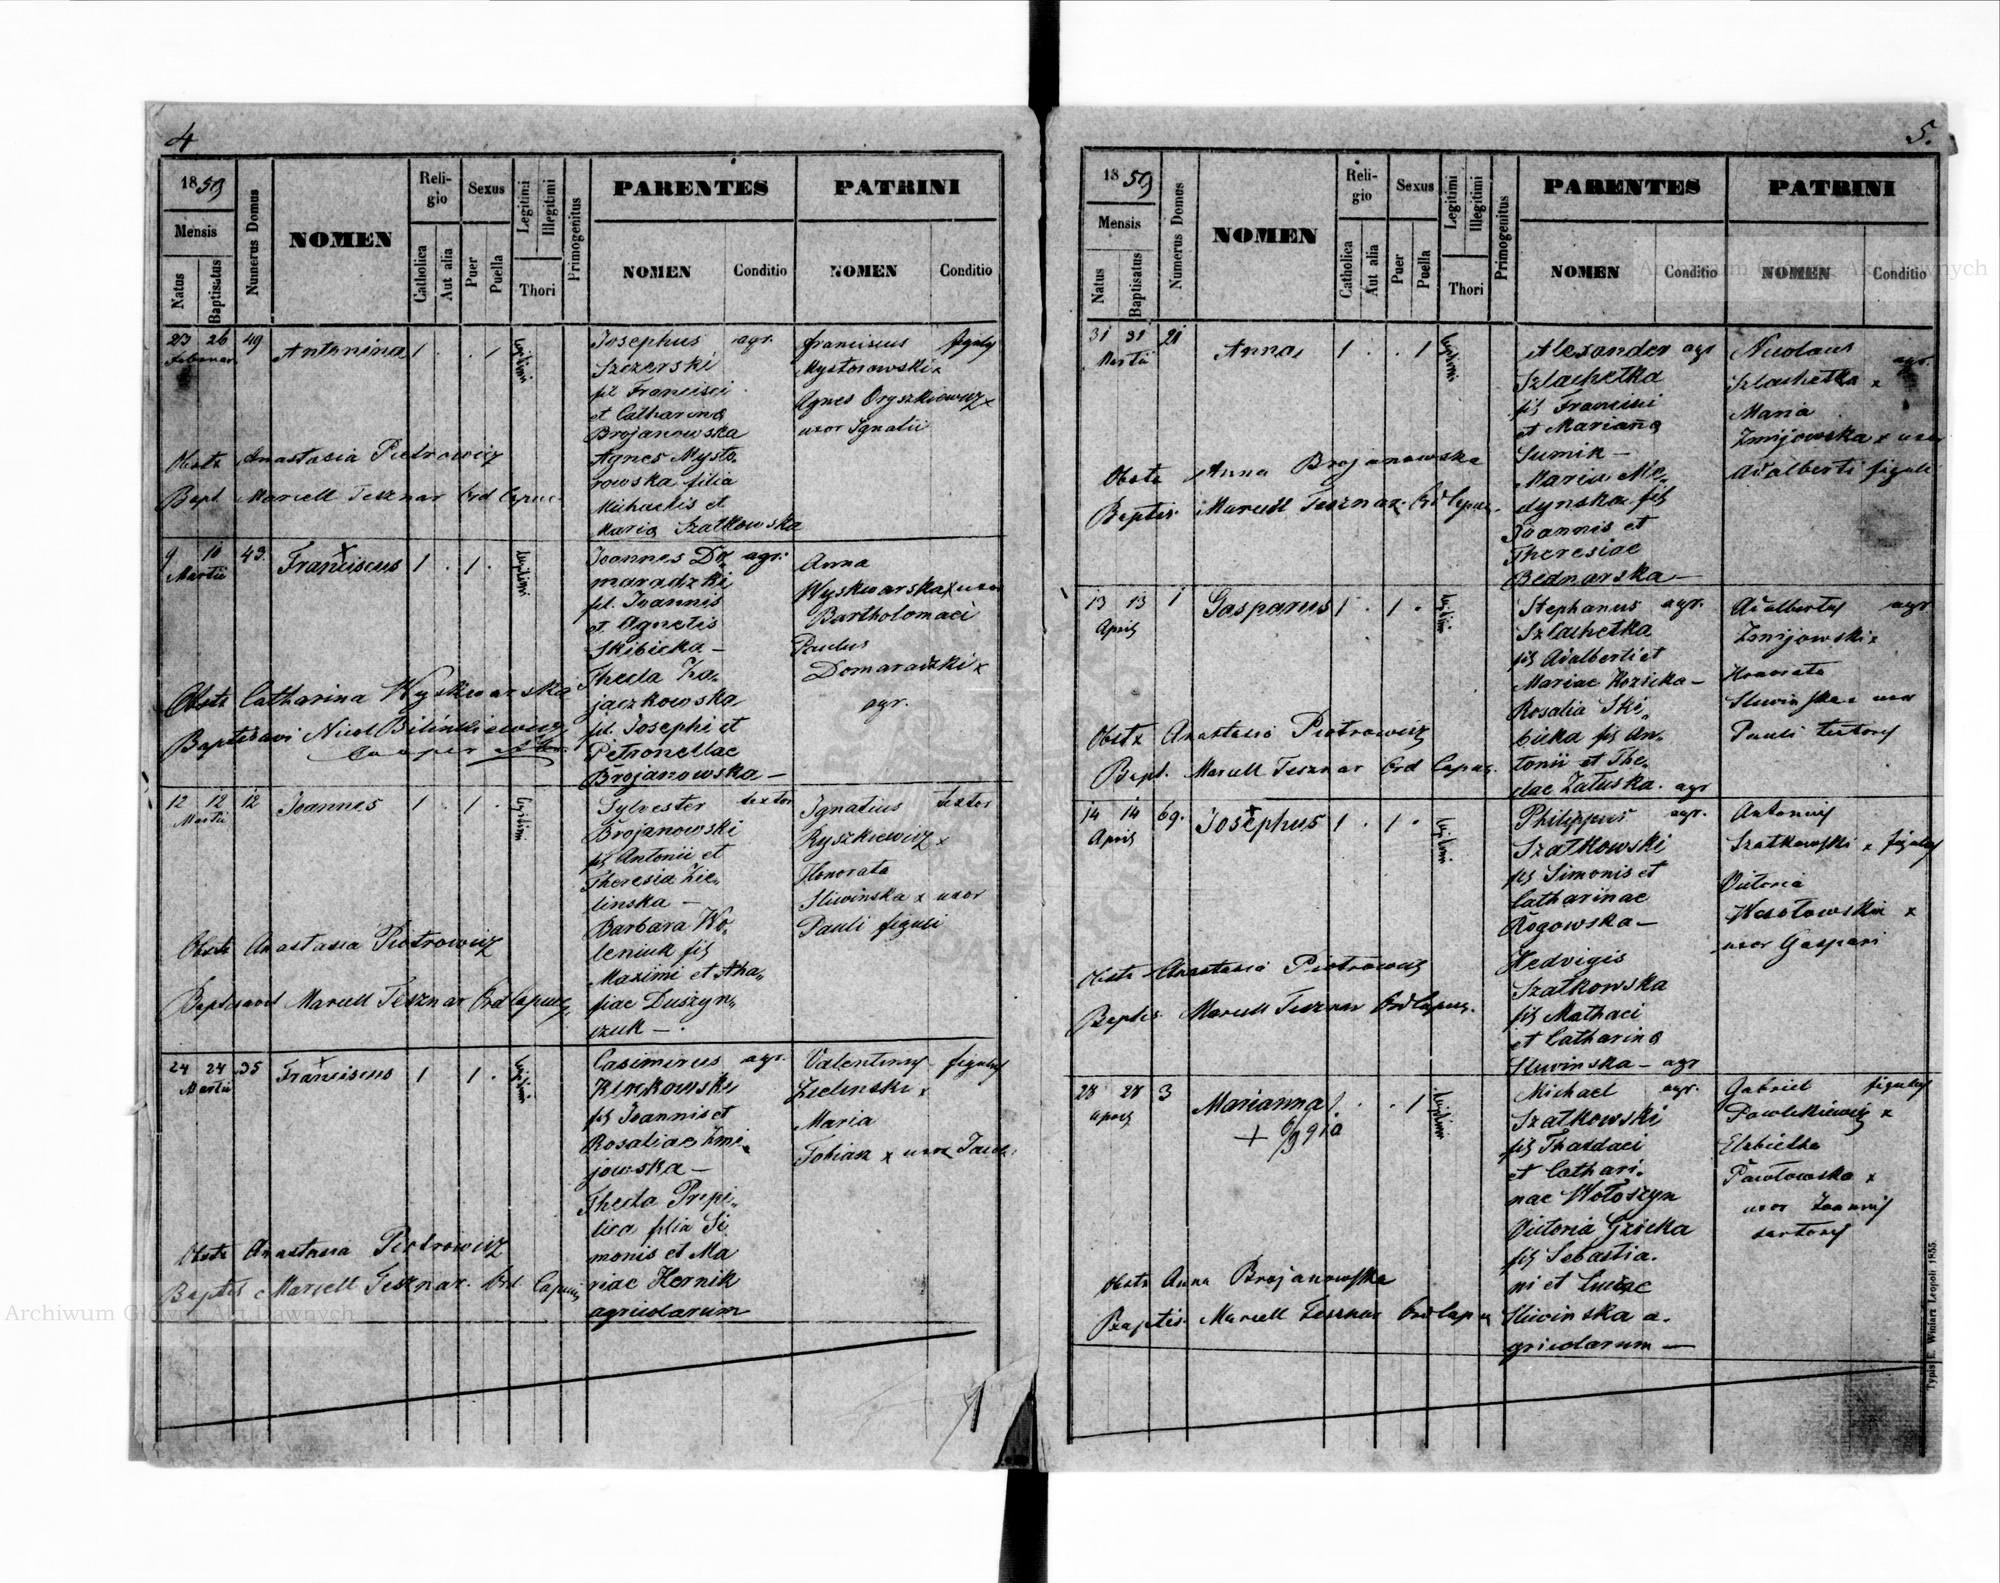 4
1859
Mensis
Natus
Baptisatus
Nunnerus Domus
NOMEN
Reli-
gio
Catholica
Aut alia
Sexus
Puer
Puella
Legitimi
Illegitimi
Thori
Primogenitus
PARENTES
NOMEN
Conditio
PATRINI
NOMEN
Conditio
23 26 49 Antonina 1 . . 1
Josephus agr.
Szczerski
fil Francisci
et Catharina
Brojanowska
Agnes Mysto-
rowska filia
Michaelis et
Maria Szatkowska
Franciscus
Mystorowski x
Agnes Oryszkiewicz x
uxor Ignatii
Obste Anastasia Pietrowicz
Bapt. Marcell Tesznar Ord Capuc.
9 10 43. Franciscus 1 . 1 .
Martii
Joannes Do- agr.
maradzki
fil. Joannis
et Agnetis
Skibicka —
Thecla Za-
jaczkowska
fil. Josephi et
Petronellae
Brojanowska —
Anna
Wyskwarska x uxor
Bartholomaei
Paulus
Domaradzki x
agr.
Obste Catharina Wyskwarska
Baptisavi Nicol Bilinkiewicz
12 12 12 Joannes 1 . 1 .
Martii
Sylvester textor
Brojanowski
fil Antonii et
Theresia Zie-
linska —
Barbara Wo-
leniuk fil
Maximi et Aha-
fiae Duszyn-
czuk — .
Ignatius textor
Ryszkiewicz x
Honorata
Sliwinska x uxor
Pauli figuli
Obste Anastasia Piotrowicz
Baptisavit Marcell Tesznar Ord Capuc.
24 24 35 Franciscus 1 1 .
Martii
Casimirus agr.
fil Joannis et
Rosaliae Zmi-
jowska —
Thecla Prepi-
lica filia Si
monis et Ma
riae Hernik
agricolarum
Valentinus figulus
Zielinski x
Maria
Tobiasz x uxor
Obste Anastasia Piotrowicz
Baptis Marcell Tesznar. Ord. Capuc.
5.
1859
Mensis
Natus
Baptisatus
Numerus Domus
NOMEN
Reli-
gio
Catholica
Aut alia
Sexus
Puer
Puella
Legitimi
Illegitimi
Thori
Primogenitus
PARENTES
NOMEN
Conditio
PATRINI
NOMEN
Conditio
31 31 21 Anna 1 . . 1
Martii
Alexander agr
Szlachetka
fil Francisci
et Marianna
Sumik —
Maria Mo-
dynska fil
Joannis et
Theresiae
Bednarska —
Nicolaus agr.
Szlachetka x
Maria
Zmijowska x uxor
Adalberti figuli
Obste Anna Brojanowska
Baptis. Marcell Tesznar. Ord Capuc.
13 13 1 Gasparus 1 . 1 .
April
Stephanus agr.
Szlachetka
fil Adalberti et
Mariae Kozicka —
Rosalia Ski-
bicka fil An-
tonii et The-
clae Zatuska. agr
Adalbertus agr
Zmijowski x
Honorata
Sliwinska uxor
Pauli textoris
Obste Anastasia Piotrowicz
Bapt. Marcell Tesznar Ord Capuc.
14 14 69. Josephus 1 . 1 .
April
Philippus agr.
Szatkowski
fil Simonis et
Catharinae
Rogowska —
Hedvigis
Szatkowska
fil Mathaei
et Catharina
Sliwinska — agr
Antonius
Szatkowski x figulus
Victoria
Wesołowska x
uxor Gaspari
Obste Anastasia Piotrowicz
Baptis. Marcell Tesznar Ord Capuc.
28 28 3 Marianna 1 . . 1
April
Michael agr.
Szatkowski
fil Thaddaei
et Cathari-
nae Wołoszyn
Victoria Gzicka
fil Sebastia-
ni et Luciae
Sliwinska a-
gricolarum —
Gabriel figulus
Pawlikiewicz x
Elzbietha
Pawłowska x
uxor Joannis
sartoris
Obste Anna Brojanowska
Baptis. Marcell Tesznar Ord Capuc
Typis E. Winiarz Leopoli 1855.
Archiwum Główne Akt Dawnych
Archiwum Główne Akt Dawnych